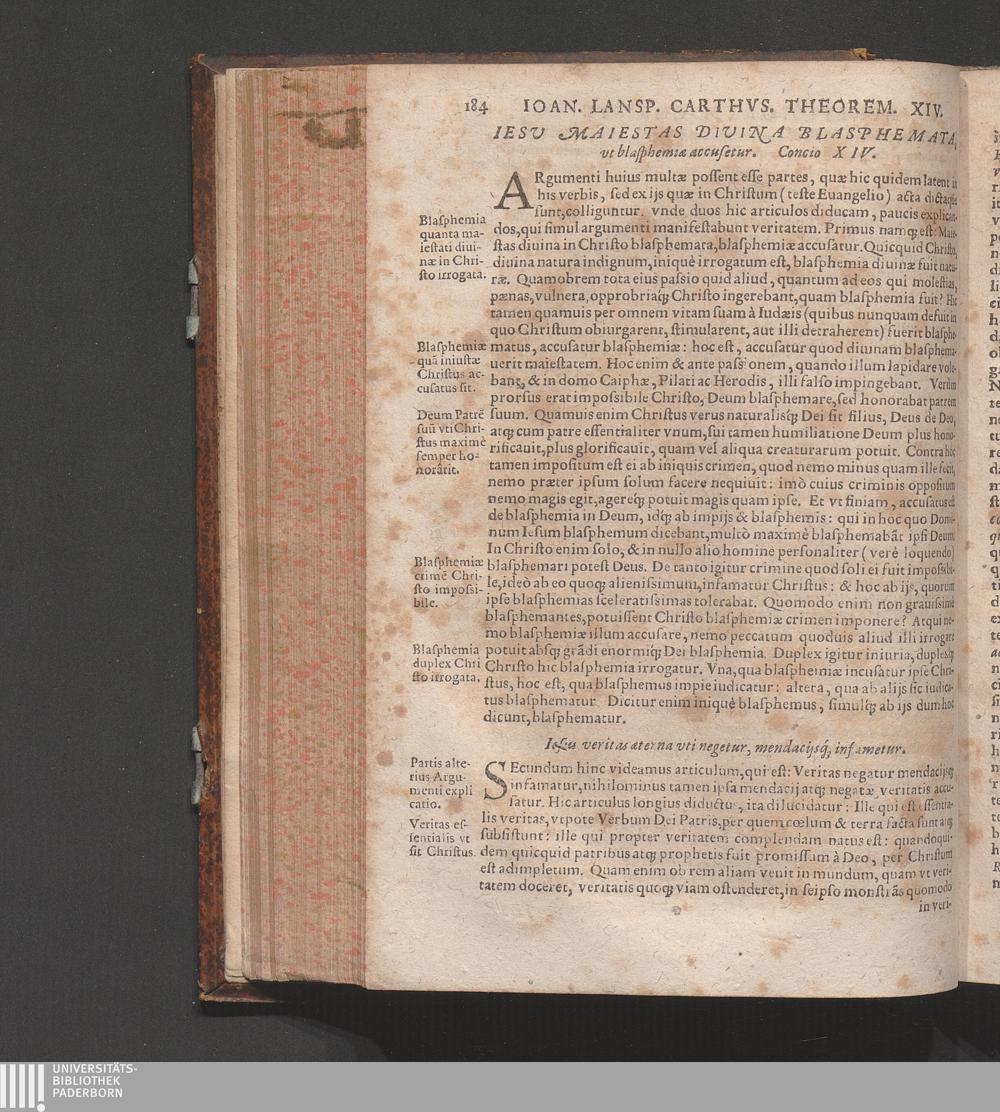 184 IOAN. LANSP. CARTHVS. THEOREM. XIV.
IESV MAIESTAS DIVINA BLASPHEMATA,
vt blaſphemiæ accuſetur. Concio XIV.
ARgumenti huius multæ poſſent eſſe partes, quæ hic quidem latent in
his verbis, ſed ex ijs quæ in Chriſtum (teſte Euangelio) acta dictaque
ſunt, colliguntur. vnde duos hic articulos diducam, paucis explican-
dos, qui ſimul argumenti manifeſtabunt veritatem. Primus namq; eſt: Maie-
ſtas diuina in Chriſto blaſphemata, blaſphemiæ accuſatur. Quicquid Chriſto,
diuina natura indignum, iniquè irrogatum eſt, blaſphemia diuinæ fuit natu-
ræ. Quamobrem tota eius paſsio quid aliud, quantum ad eos qui moleſtias,
pænas, vulnera, opprobriaq́; Chriſto ingerebant, quam blaſphemia fuit? Hic
tamen quamuis per omnem vitam ſuam à Iudæis (quibus nunquam defuit in
quo Chriſtum obiurgarent, ſtimularent, aut illi detraherent) fuerit blaſphe-
matus, accuſatur blaſphemiæ: hoc eſt, accuſatur quod diuinam blaſphema-
uerit maieſtatem. Hoc enim & ante paſsionem, quando illum lapidare vole-
bant, & in domo Caiphæ, Pilati ac Herodis, illi falſo impingebant. Verùm
prorſus erat impoſsibile Chriſto, Deum blaſphemare, ſed honorabat patrem
ſuum. Quamuis enim Chriſtus verus naturaliſq́; Dei ſit filius, Deus de Deo,
atq; cum patre eſſentialiter vnum, ſui tamen humiliatione Deum plus hono-
rificauit, plus glorificauit, quam vel aliqua creaturarum potuit. Contra hoc
tamen impoſitum eſt ei ab iniquis crimen, quod nemo minus quam ille fecit,
nemo præter ipſum ſolum facere nequiuit: imò cuius criminis oppoſitum
nemo magis egit, agereq́; potuit magis quam ipſe. Et vt finiam, accuſatus eſt
de blaſphemia in Deum, idq́; ab impijs & blaſphemis: qui in hoc quo Domi-
num Ieſum blaſphemum dicebant, multò maximè blaſphemabāt ipſi Deum.
In Chriſto enim ſolo, & in nullo alio homine perſonaliter (verè loquendo)
blaſphemari poteſt Deus. De tanto igitur crimine quod ſoli ei fuit impoſsibi-
le, ideò ab eo quoq; alieniſsimum, infamatur Chriſtus: & hoc ab ijs, quorum
ipſe blaſphemias ſceleratiſsimas tolerabat. Quomodo enim non grauiſsimè
blaſphemantes, potuiſſent Chriſto blaſphemiæ crimen imponere? Atqui ne-
mo blaſphemiæ illum accuſare, nemo peccatum quoduis aliud illi irrogare
potuit abſq; grādi enormiq́; Dei blaſphemia. Duplex igitur iniuria, duplexq́;
Chriſto hic blaſphemia irrogatur. Vna, qua blaſphemiæ incuſatur ipſe Chri-
ſtus, hoc eſt, qua blaſphemus impie iudicatur: altera, qua ab alijs ſic iudica-
tus blaſphematur. Dicitur enim iniquè blaſphemus, ſimulq́; ab ijs dum hoc
dicunt, blaſphematur.
Blaſphemia
quanta ma-
ieſtati diui-
næ in Chri-
ſto irrogata.
Blaſphemiæ
quā iniuſtæ
Chriſtus ac-
cuſatus ſit.
Deum Patrē
ſuū vti Chri-
ſtus maximè
ſemper ho-
norârit.
Blaſphemiæ
crimē Chri-
ſto impoſsi-
bile.
Blaſphemia
duplex Chri
ſto irrogata.
Ieſu veritas æterna vti negetur, mendacijsq́, infametur.
SEcundum hinc videamus articulum, qui eſt: Veritas negatur mendacijsq;
infamatur, nihilominus tamen ipſa mendacij atq; negatæ veritatis accu-
ſatur. Hic articulus longius diductus, ita dilucidatur: Ille qui eſt eſſentia-
lis veritas, vtpote Verbum Dei Patris, per quem cœlum & terra facta ſunt atq;
ſubſiſtunt: ille qui propter veritatem complendam natus eſt: quandoqui-
dem quicquid patribus atq; prophetis fuit promiſſum à Deo, per Chriſtum
eſt adimpletum. Quam enim ob rem aliam venit in mundum, quam vt veri-
tatem doceret, veritatis quoq; viam oſtenderet, in ſeipſo monſtrās quomodo
in veri-
Partis alte-
rius Argu-
menti expli
catio.
Veritas eſ-
ſentialis vt
ſit Chriſtus.
UNIVERSITÄTS-
BIBLIOTHEK
PADERBORN